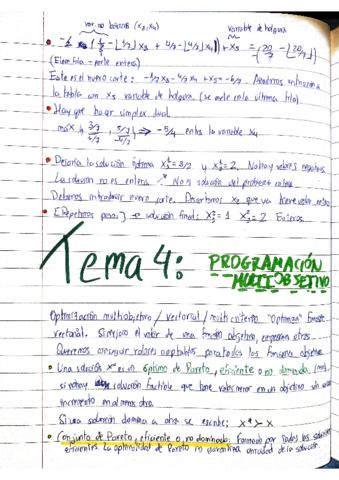 var. no básicas (x3, x4)
variable de holgura
(Elem fila - parte entera)
Este es el nuevo corte: -1/7 x3 - 4/7 x4 + x5 = -6/7. Añadimos
la tabla con x5 variable de holgura (se mete en la última fila)
• Hay que hacer simplex dual.
⇒ -5/4 entra la variable x4
• Dejaría la solución óptima x1* = 3/2 y x2* = 2. No hay valores negativos
La solución no es entera ∴ No es solución del problema
Debemos introducir nuevo corte. Descartamos x2 que ya tiene valor entero
• [Repetimos pasos] → solución final: x1* = 1 x2* = 2 Enteros
Tema 4:
PROGRAMACIÓN
MULTIOBJETIVO
Optimización multiobjetivo / vectorial / multicriterio "Optimiza" función
vectorial. Si mejoro el valor de una función objetivo, empeoran otras.
Queremos conseguir valores aceptables para todas las funciones objetivo
• Una solución x* es un óptimo de Pareto, eficiente o no dominada
si no hay solución factible que tome valores menor en un objetivo sin
incremento en al menos otro.
Si una solución domina a otra se escribe: x* > x
• Conjunto de Pareto, eficiente o no dominado: formado por todas las soluciones
eficientes. La optimalidad de Pareto no garantiza unicidad de la solución.